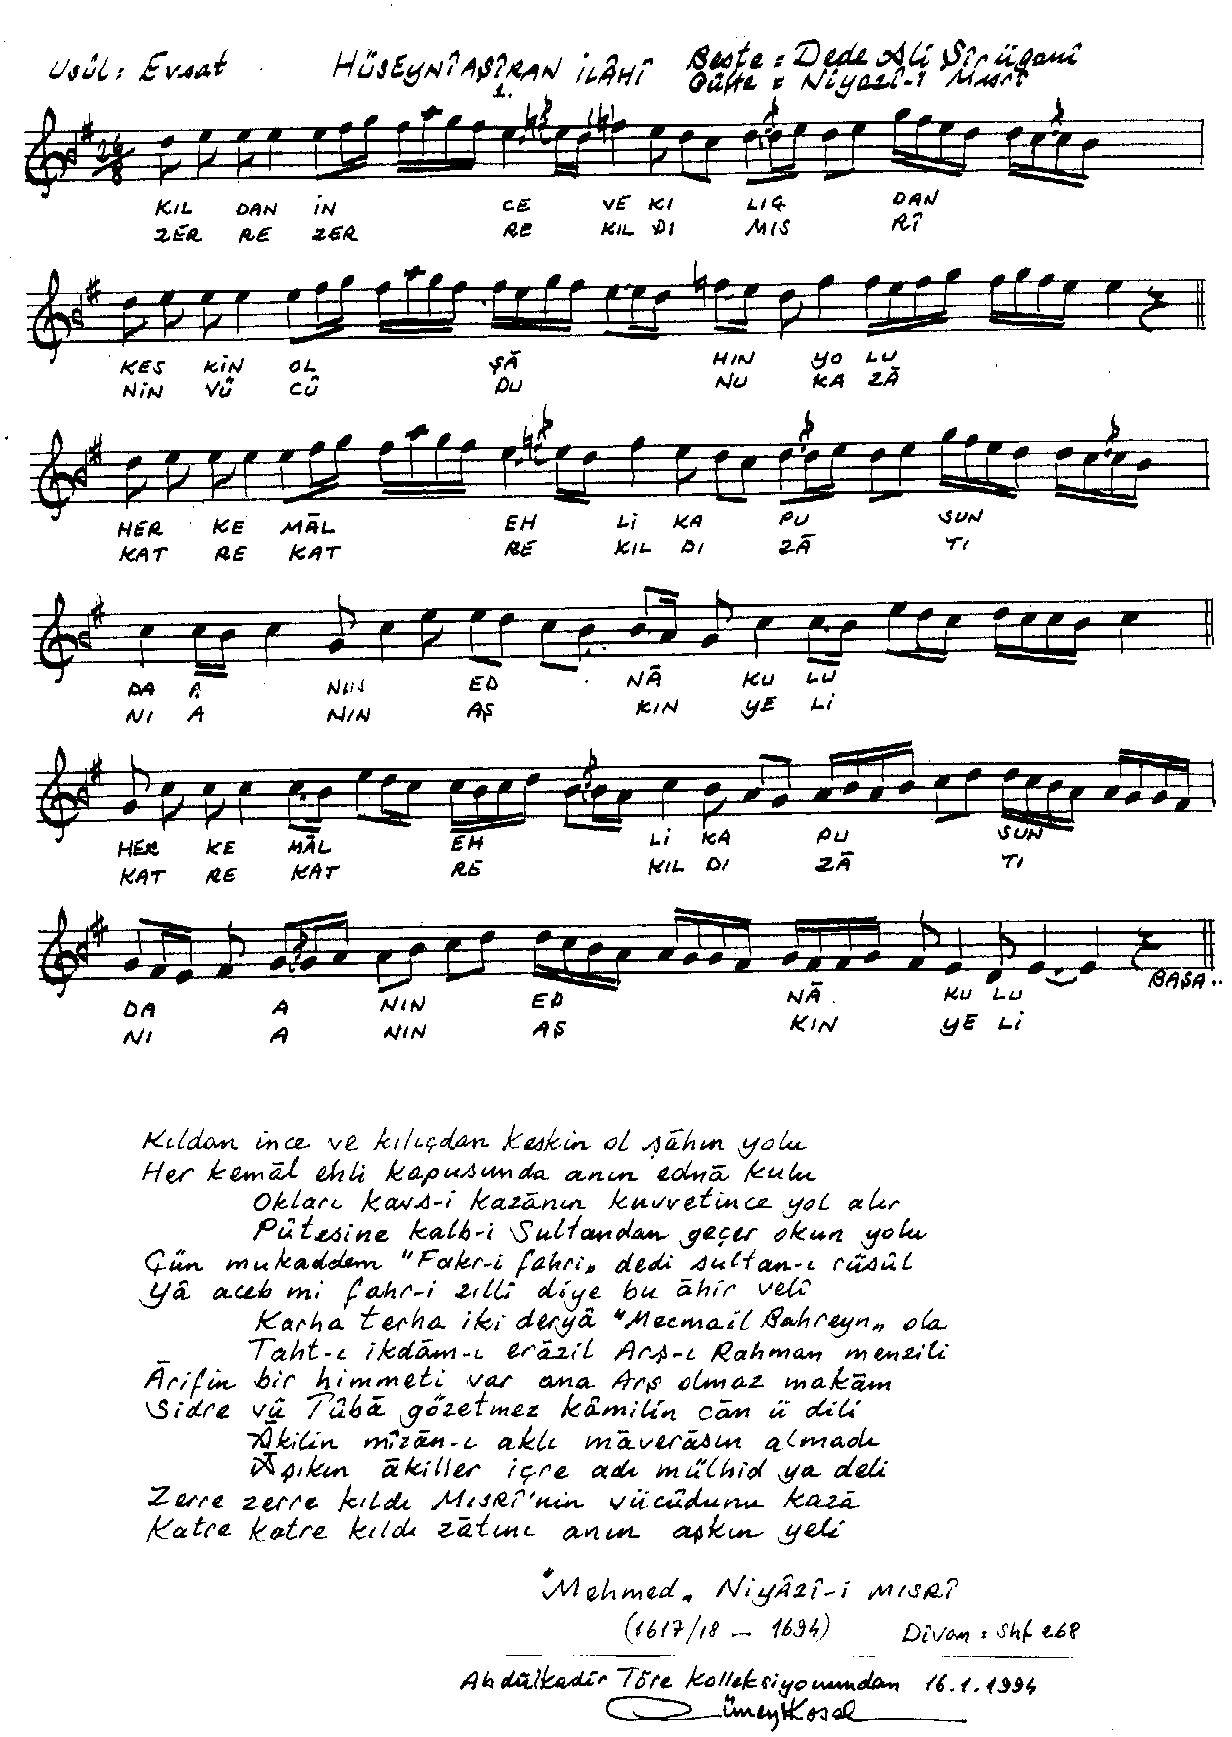 Usûl: Evsat HÜSEYNÎAŞÎRAN İLÂHÎ Beste: Dede Ali Şîrüganî
1. Güfte = Niyazî-i Mısrî
26/8
KIL DAN İN CE VE KI LIÇ DAN
ZER RE ZER RE KIL DI MIS RÎ
KES KİN OL ŞÂ HIN YO LU
NİN VÜ CÛ DU NU KA ZÂ
HER KE MÂL EH Lİ KA PU SUN
KAT RE KAT RE KIL DI ZÂ TI
DA A NIN ED NÂ KU LU
NI A NIN AŞ KIN YE Lİ
HER KE MÂL EH Lİ KA PU SUN
KAT RE KAT RE KIL DI ZÂ TI
BAŞA..
DA A NIN ED NÂ KU LU
NI A NIN AŞ KIN YE Lİ
Kıldan ince ve kılıçdan keskin ol şâhın yolu
Her kemâl ehli kapusunda anın ednâ kulu
Okları kavs-i kazânın kuvvetince yol alır
Pûtesine kalb-i Sultandan geçer okun yolu
Çün mukaddem "Fakr-i fahri„ dedi sultan-ı rüsül
Yâ aceb mi fahr-i zılli diye bu âhir velî
Karha terha iki deryâ "Mecmail Bahreyn„ ola
Taht-ı ikdâm-ı erâzil Arş-ı Rahman menzili
Ârifin bir himmeti var ana Arş olmaz makâm
Sidre vü Tûbâ gözetmez kâmilin cân ü dili
Âkilin mîzân-ı aklı mâverâsın almadı
Âşıkın âkiller içre adı mülhid ya deli
Zerre zerre kıldı Mısrî'nin vücûdunu kazâ
Katre katre kıldı zâtını anın aşkın yeli
"Mehmed„ NİYÂZÎ-i MISRÎ
(1617/18 — 1694) Dîvan: Shf 268
Abdülkadir Töre Kolleksiyonundan 16.1.1994
Cüneyt Kosal